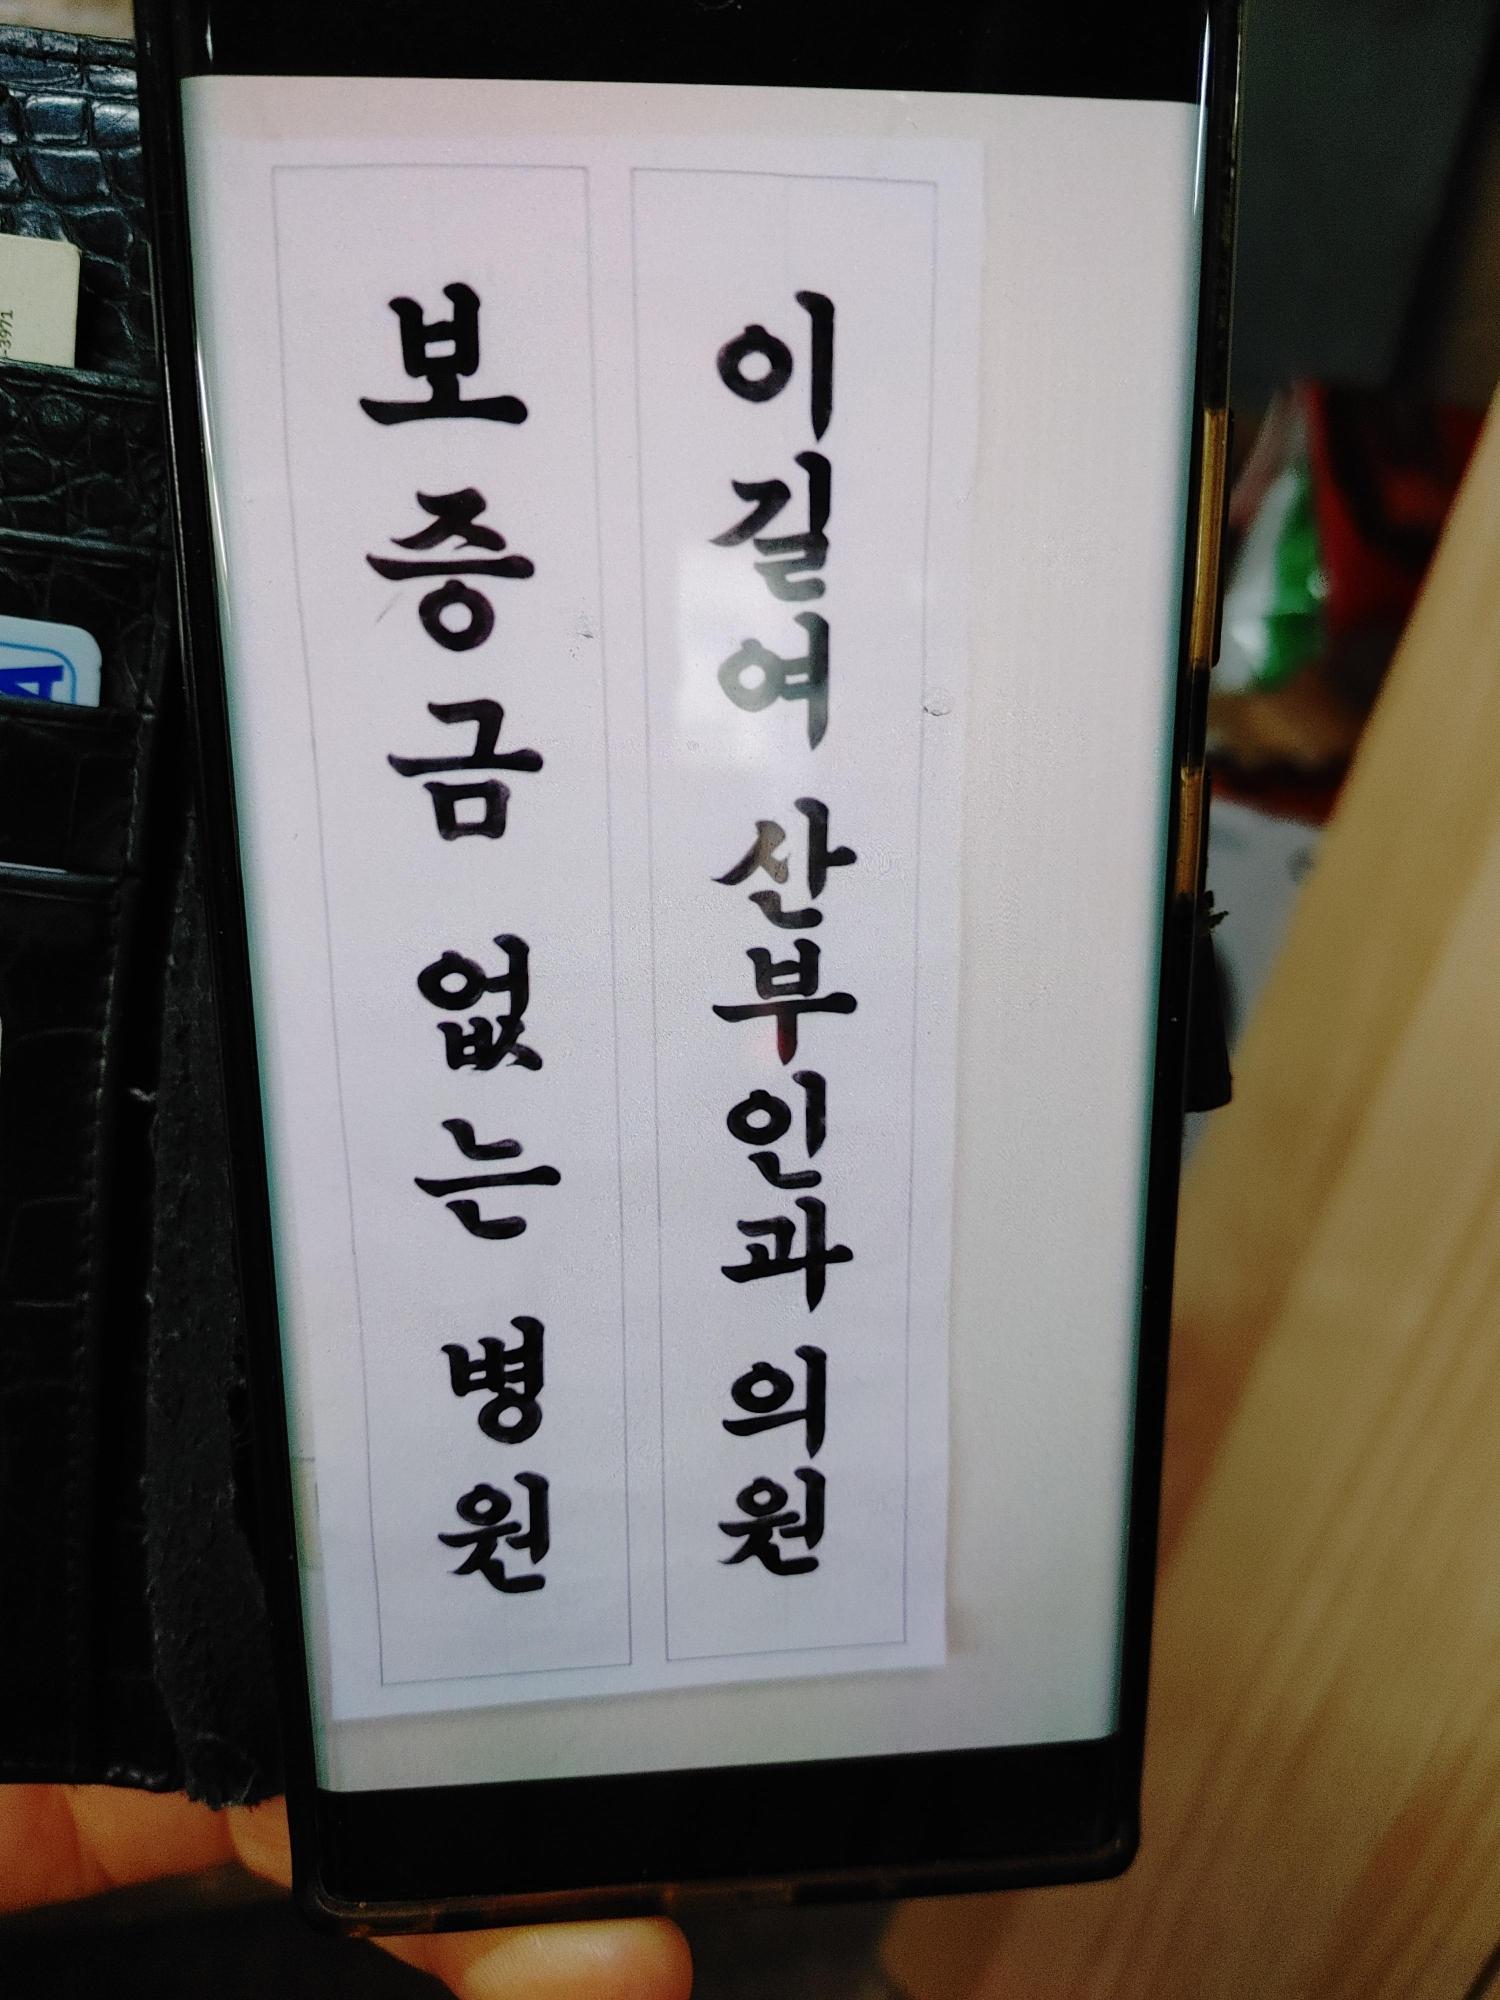 보증금 없는 병원
이길여 산부인과 의원
-3971
A